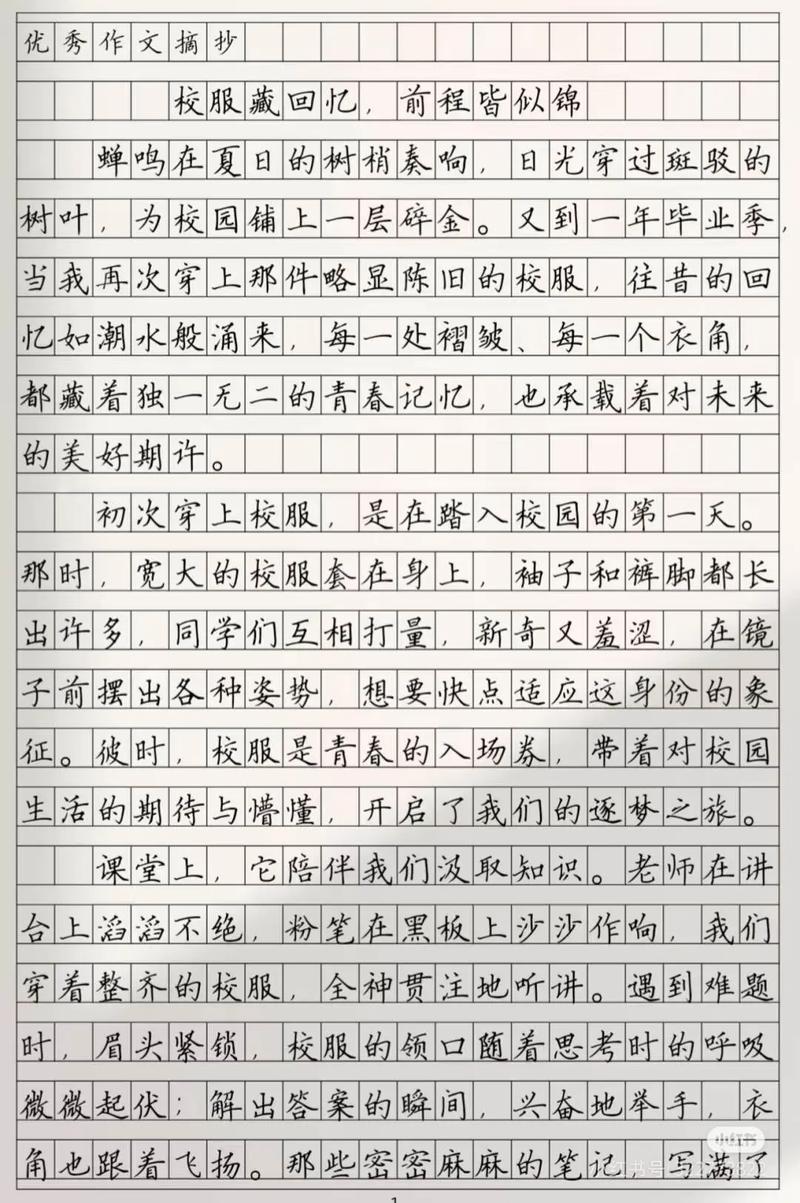 优秀作文摘抄
校服藏回忆，前程皆似锦
蝉鸣在夏日的树梢奏响，日光穿过斑驳的
树叶，为校园铺上一层碎金。又到一年毕业季，
当我再次穿上那件略显陈旧的校服，往昔的回
忆如潮水般涌来，每一处褶皱、每一个衣角，
都藏着独一无二的青春记忆，也承载着对未来
的美好期许。
初次穿上校服，是在踏入校园的第一天。
那时，宽大的校服套在身上，袖子和裤脚都长
出许多，同学们互相打量，新奇又羞涩，在镜
子前摆出各种姿势，想要快点适应这身份的象
征。彼时，校服是青春的入场券，带着对校园
生活的期待与懵懂，开启了我们的逐梦之旅。
课堂上，它陪伴我们汲取知识。老师在讲
台上滔滔不绝，粉笔在黑板上沙沙作响，我们
穿着整齐的校服，全神贯注地听讲。遇到难题
时，眉头紧锁，校服的领口随着思考时的呼吸
微微起伏；解出答案的瞬间，兴奋地举手，衣
角也跟着飞扬。那些密密麻麻的笔记，写满了
小红书
1